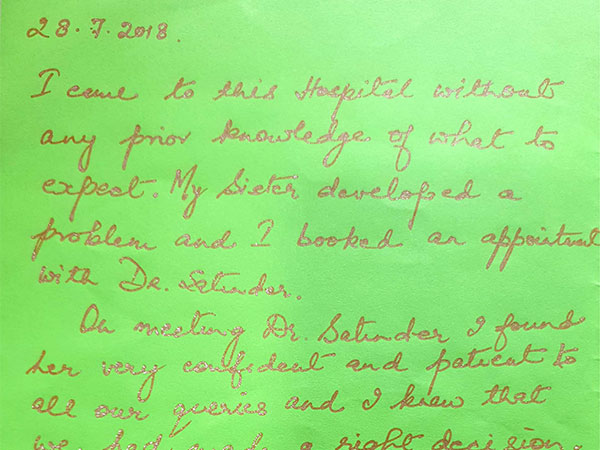 28.7.2018.
I came to this Hospital without
any prior knowledge of what to
expect. My Sister developed a
problem and I booked an appointment
with Dr. Satinder.
On meeting Dr. Satinder I found
her very confident and patient to
all our queries and I knew that
we had made a right decision.